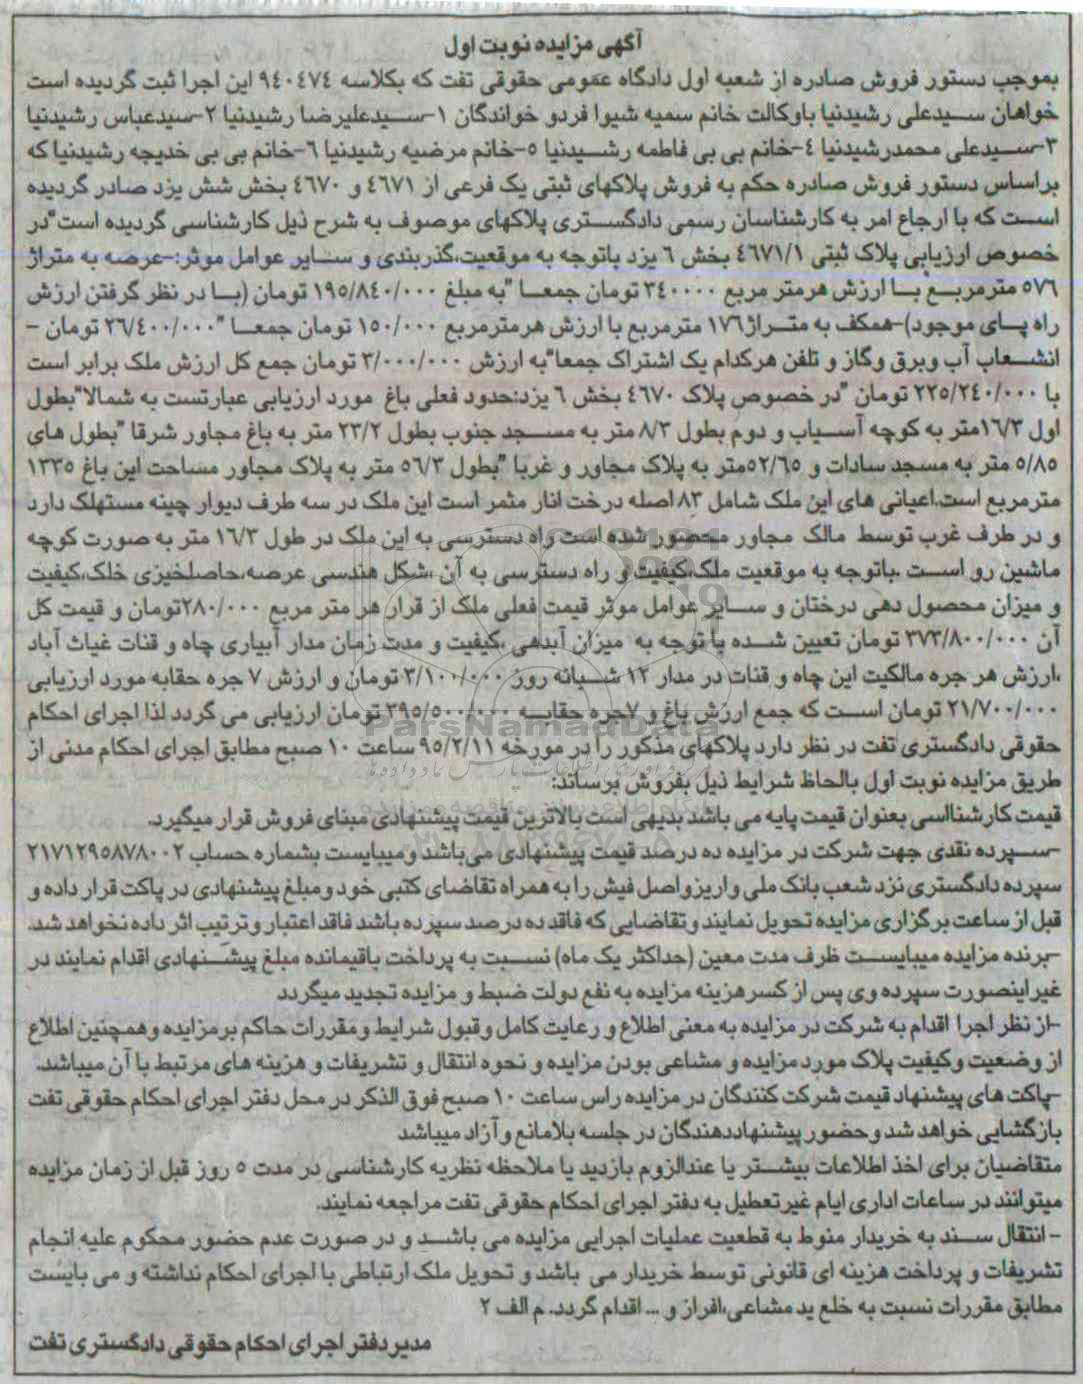 آگهی مزایده نوبت اول
بموجب دستور فروش صادره از شعبه اول دادگاه عمومی حقوقی تفت که بکلاسه ۹۴۰۴۷۴ این اجرا ثبت گردیده است
خواهان سیدعلی رشیدنیا باوکالت خانم سمیه شیوا فردو خواندگان ۱-سیدعلیرضا رشیدنیا ۲-سیدعباس رشیدنیا
۳-سیدعلی محمدرشیدنیا ۴-خانم بی بی فاطمه رشیدنیا ۵-خانم مرضیه رشیدنیا ۶-خانم بی بی خدیجه رشیدنیا که
براساس دستور فروش صادره حکم به فروش پلاکهای ثبتی یک فرعی از ۴۶۷۱ و ۴۶۷۰ بخش شش یزد صادر گردیده
است که با ارجاع امر به کارشناسان رسمی دادگستری پلاکهای موصوف به شرح ذیل کارشناسی گردیده است"در
خصوص ارزیابی پلاک ثبتی ۴۶۷۱/۱ بخش ۶ یزد باتوجه به موقعیت،گذربندی و سایر عوامل موثر:-عرصه به متراژ
۵۷۶ مترمربع با ارزش هرمتر مربع ۳۴۰۰۰۰ تومان جمعا "به مبلغ ۱۹۵/۸۴۰/۰۰۰ تومان (با در نظر گرفتن ارزش
راه پای موجود)-همکف به متراژ۱۷۶ مترمربع با ارزش هرمترمربع ۱۵۰/۰۰۰ تومان جمعا "۲۶/۴۰۰/۰۰۰ تومان -
انشعاب آب وبرق وگاز و تلفن هرکدام یک اشتراک جمعا"به ارزش ۳/۰۰۰/۰۰۰ تومان جمع کل ارزش ملک برابر است
با ۲۲۵/۲۴۰/۰۰۰ تومان "در خصوص پلاک ۴۶۷۰ بخش ۶ یزد:حدود فعلی باغ مورد ارزیابی عبارتست به شمالا"بطول
اول ۱۶/۳متر به کوچه آسیاب و دوم بطول ۸/۳ متر به مسجد جنوب بطول ۲۳/۲ متر به باغ مجاور شرقا "بطول های
۵/۸۵ متر به مسجد سادات و ۵۲/۶۵متر به پلاک مجاور و غربا "بطول ۵۶/۳ متر به پلاک مجاور مساحت این باغ ۱۳۳۵
مترمربع است.اعیانی های این ملک شامل ۸۳ اصله درخت انار مثمر است این ملک در سه طرف دیوار چینه مستهلک دارد
و در طرف غرب توسط مالک مجاور محصور شده است راه دسترسی به این ملک در طول ۱۶/۳ متر به صورت کوچه
ماشین رو است .باتوجه به موقعیت ملک،کیفیت و راه دسترسی به آن ،شکل هندسی عرصه،حاصلخیزی خلک،کیفیت
و میزان محصول دهی درختان و سایر عوامل موثر قیمت فعلی ملک از قرار هر متر مربع ۲۸۰/۰۰۰تومان و قیمت کل
آن ۳۷۳/۸۰۰/۰۰۰ تومان تعیین شده با توجه به میزان آبدهی ،کیفیت و مدت زمان مدار آبیاری چاه و قنات غیاث آباد
،ارزش هر جره مالکیت این چاه و قنات در مدار ۱۲ شبانه روز ۳/۱۰۰/۰۰۰ تومان و ارزش ۷ جره حقابه مورد ارزیابی
۲۱/۷۰۰/۰۰۰ تومان است که جمع ارزش باغ و ۷جره حقابه ۳۹۵/۵۰۰/۰۰۰ تومان ارزیابی می گردد لذا اجرای احکام
حقوقی دادگستری تفت در نظر دارد پلاکهای مذکور را در مورخه ۹۵/۲/۱۱ ساعت ۱۰ صبح مطابق اجرای احکام مدنی از
طریق مزایده نوبت اول بالحاظ شرایط ذیل بفروش برساند:
قیمت کارشنااسی بعنوان قیمت پایه می باشد بدیهی است بالاترین قیمت پیشنهادی مبنای فروش قرار میگیرد.
-سپرده نقدی جهت شرکت در مزایده ده درصد قیمت پیشنهادی می‌باشد ومیبایست بشماره حساب ۲۱۷۱۲۹۵۸۷۸۰۰۲
سپرده دادگستری نزد شعب بانک ملی واریزواصل فیش را به همراه تقاضای کتبی خود ومبلغ پیشنهادی در پاکت قرار داده و
قبل از ساعت برگزاری مزایده تحویل نمایند وتقاضایی که فاقد ده درصد سپرده باشد فاقد اعتبار وترتیب اثر داده نخواهد شد.
-برنده مزایده میبایست ظرف مدت معین (حداکثر یک ماه) نسبت به پرداخت باقیمانده مبلغ پیشنهادی اقدام نمایند در
غیراینصورت سپرده وی پس از کسرهزینه مزایده به نفع دولت ضبط و مزایده تجدید میگردد
-از نظر اجرا اقدام به شرکت در مزایده به معنی اطلاع و رعایت کامل وقبول شرایط ومقررات حاکم برمزایده وهمچنین اطلاع
از وضعیت وکیفیت پلاک مورد مزایده و مشاعی بودن مزایده و نحوه انتقال و تشریفات و هزینه های مرتبط با آن میباشد.
-پاکت های پیشنهاد قیمت شرکت کنندگان در مزایده راس ساعت ۱۰ صبح فوق الذکر در محل دفتر اجرای احکام حقوقی تفت
بازگشایی خواهد شد وحضور پیشنهاددهندگان در جلسه بلامانع وآزاد میباشد
متقاضیان برای اخذ اطلاعات بیشتر یا عندالزوم بازدید یا ملاحظه نظریه کارشناسی در مدت ۵ روز قبل از زمان مزایده
میتوانند در ساعات اداری ایام غیرتعطیل به دفتر اجرای احکام حقوقی تفت مراجعه نمایند.
- انتقال سند به خریدار منوط به قطعیت عملیات اجرایی مزایده می باشد و در صورت عدم حضور محکوم علیه انجام
تشریفات و پرداخت هزینه ای قانونی توسط خریدار می باشد و تحویل ملک ارتباطی با اجرای احکام نداشته و می بایست
مطابق مقررات نسبت به خلع ید مشاعی،افراز و ... اقدام گردد. م الف ۲
مدیر دفتر اجرای احکام حقوقی دادگستری تفت
ParsNamadData